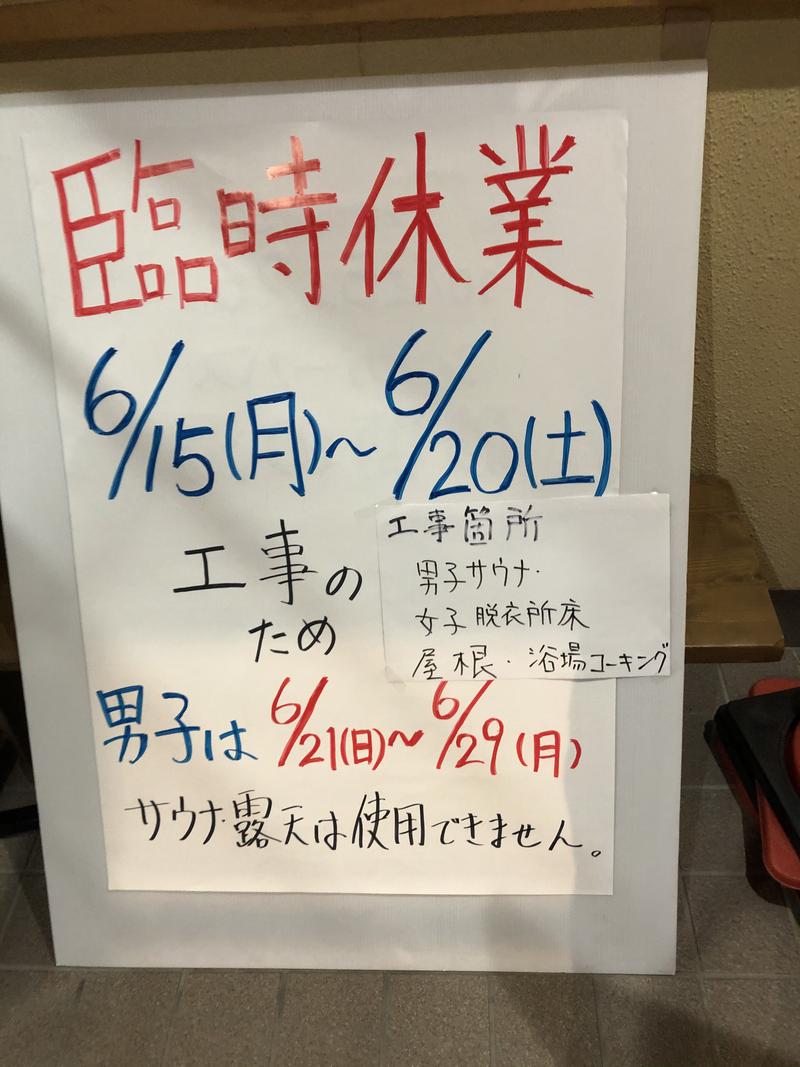 臨時休業
6/15(月)～6/20(土)
工事の
ため
工事箇所
男子サウナ・
女子脱衣所床
屋根・浴場コーキング
男子は 6/21(日)～6/29(月)
サウナ・露天は使用できません。